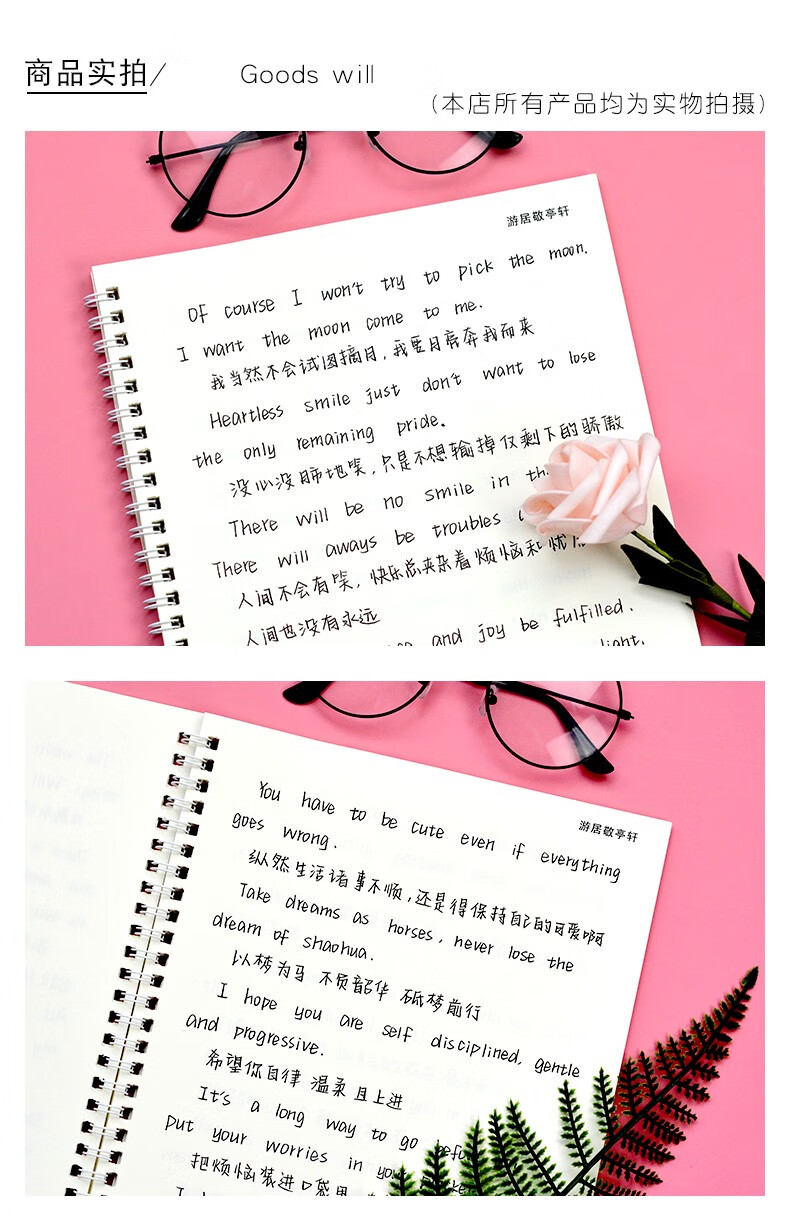 商品实拍/
Goods will
(本店所有产品均为实物拍摄)
游居敬亭轩
Of course I won't try to pick the moon.
I want the moon come to me.
我当然不会试图摘月,我要月亮奔我而来
Heartless smile just don't want to lose
the only remaining pride.
没心没肺地笑,只是不想输掉仅剩下的骄傲
There will be no smile in
There will aways be troubles
人间不会有笑,快乐总夹杂着烦恼和忧
人间也没有永远
and joy be fulfilled.
light.
游居敬亭轩
You have to be cute even if everything
goes wrong.
纵然生活诸事不顺,还是得保持自己的可爱啊
Take dreams as horses, never lose the
dream of shaohua.
以梦为马 不负韶华 砥梦前行
I hope you are self disciplined, gentle
and progressive.
希望你自律 温柔 且上进
It's a long way to go
Put your worries in your
把烦恼装进口袋里